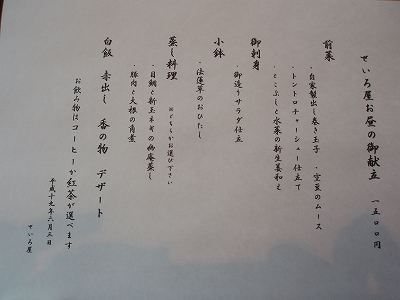 せいろ屋お昼の御献立　一五〇〇円
前菜
・自家製出し巻き玉子　・空豆のムース
・トントロチャーシュー仕立て
・とこぶしと水菜の新生姜和え
御刺身
・御造りサラダ仕立
小鉢
・法蓮草のおひたし
蒸し料理　※どちらかお選び下さい
・目鯛と新玉ネギの柚庵蒸し
・豚肉と大根の角煮
白飯　赤出し　香の物　デザート
お飲み物はコーヒーか紅茶が選べます
平成十九年六月三日
せいろ屋